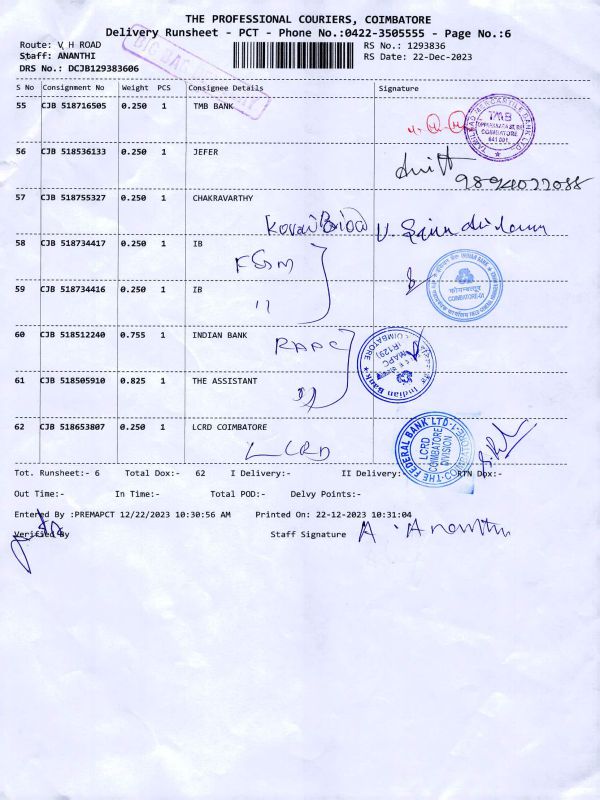 THE PROFESSIONAL COURIERS, COIMBATORE
Delivery Runsheet - PCT - Phone No.:0422-3505555 - Page No.:6
Route: V H ROAD RS No.: 1293836
Staff: ANANTHI RS Date: 22-Dec-2023
DRS No.: DCJB129383606
S No Consignment No Weight PCS Consignee Details Signature
55 CJB 518716505 0.250 1 TMB BANK
TAMILNAD MERCANTILE BANK LTD. TMB COIMBATORE 641 001
56 CJB 518536133 0.250 1 JEFER
9894077088
57 CJB 518755327 0.250 1 CHAKRAVARTHY
58 CJB 518734417 0.250 1 IB
INDIAN BANK COIMBATORE
59 CJB 518734416 0.250 1 IB
"
60 CJB 518512240 0.755 1 INDIAN BANK RAPC
Indian Bank COIMBATORE
61 CJB 518505910 0.825 1 THE ASSISTANT
"
62 CJB 518653807 0.250 1 LCRD COIMBATORE
LCRD
THE FEDERAL BANK LTD LCRD COIMBATORE DIVISION
Tot. Runsheet:- 6 Total Dox:- 62 I Delivery:- II Delivery:- RTN Dox:-
Out Time:- In Time:- Total POD:- Delvy Points:-
Entered By :PREMAPCT 12/22/2023 10:30:56 AM Printed On: 22-12-2023 10:31:04
Verified By Staff Signature A. Ananthi